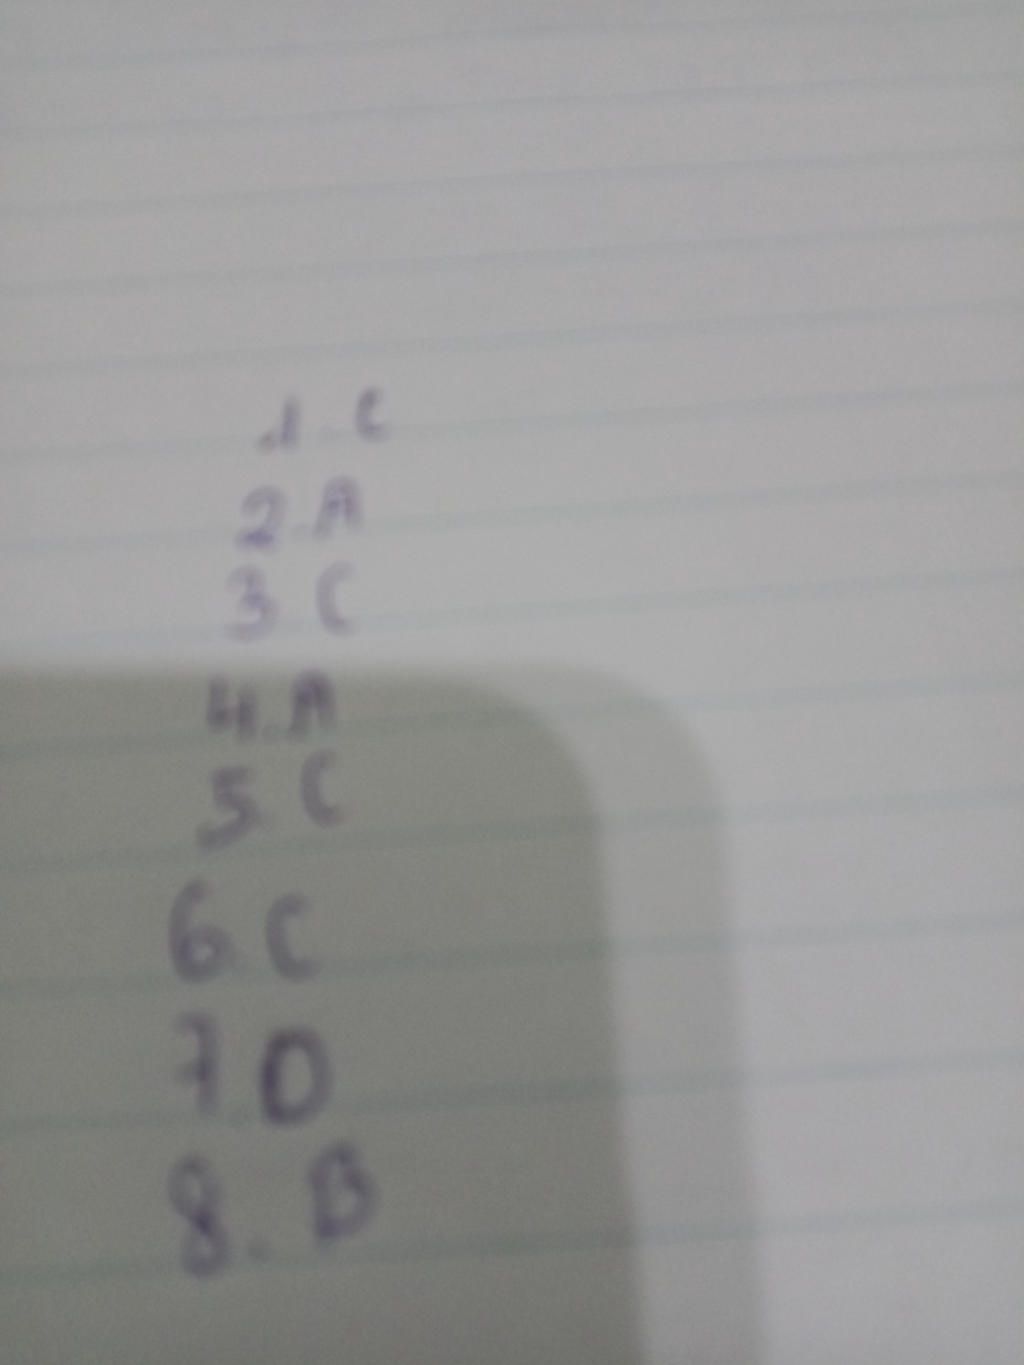 1. C
2. A
3. C
4. A
5. C
6. C
7. D
8. B